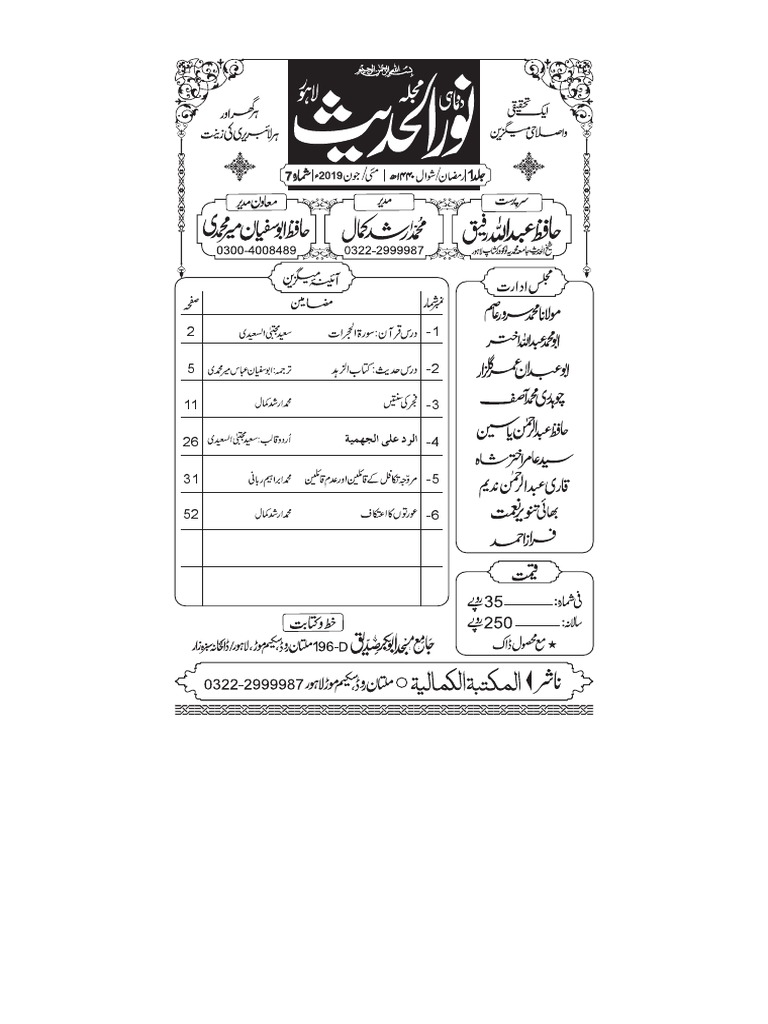 بسم اللہ الرحمن الرحیم
دوماہی مجلہ نور الحدیث لاہور
ایک تحقیقی
و اصلاحی میگزین
ہر گھر اور
ہر لائبریری کی زینت
جلد1| رمضان/شوال ۱۴۴۰ھ | مئی/جون2019ء| شمارہ7
سرپرست
حافظ عبداللہ رفیق
شیخ الحدیث جامعہ محمدیہ لوکوورکشاپ لاہور
مدیر
محمد ارشد کمال
0322-2999987
معاون مدیر
حافظ ابوسفیان میر محمدی
0300-4008489
مجلس ادارت
مولانا محمد سرور عاصم
ابو محمد عبداللہ اختر
ابو عبدان عمر گلزار
چوہدری محمد آصف
حافظ عبدالرحمٰن یاسین
سید عامر اختر شاہ
قاری عبدالرحمٰن ندیم
بھائی تنویر نعمت
فراز احمد
آئینۂ میگزین
نمبر شمار مضامین صفحہ
1- درس قرآن: سورۃ الحجرات سعید مجتبیٰ السعیدی 2
2- درس حدیث: کتاب الزہد ترجمہ: ابوسفیان عباس میر محمدی 5
3- فجر کی سنتیں محمد ارشد کمال 11
4- الرد علی الجهمية اُردو قالب: سعید مجتبیٰ السعیدی 26
5- مروّجہ تکافل کے قائلین اور عدم قائلین محمد ابراہیم ربانی 31
6- عورتوں کا اعتکاف محمد ارشد کمال 52
قیمت
فی شمارہ: 35 روپے
سالانہ: 250 روپے
★ مع محصول ڈاک
خط و کتابت
جامع مسجد ابوبکر صدیق 196-D ملتان روڈ، سکیم موڑ، لاہور/ڈاکخانہ سبزہ زار
ناشر المكتبة الكمالية ○ ملتان روڈ سکیم موڑ لاہور 0322-2999987